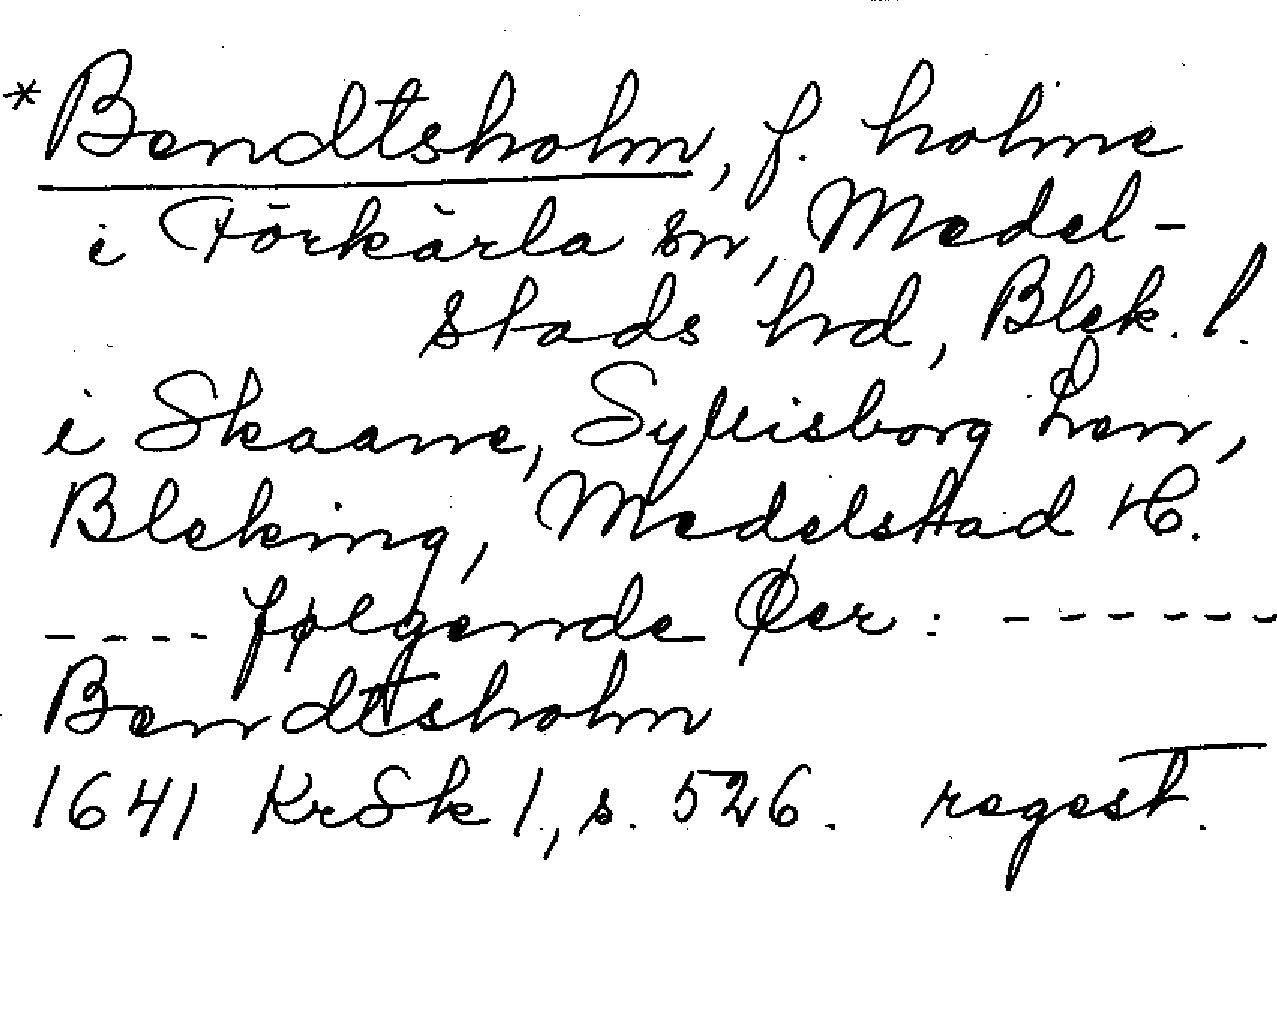 *Bendtsholm, f. holme
i Förkärla sn, Medel-
stads hd, Blek. l.
i Skaane, Sylvisborg Len,
Bleking, Medelstad H.
---- følgende Øer: ------
Bendtsholm
1641 KrSk 1, s. 526. regest.